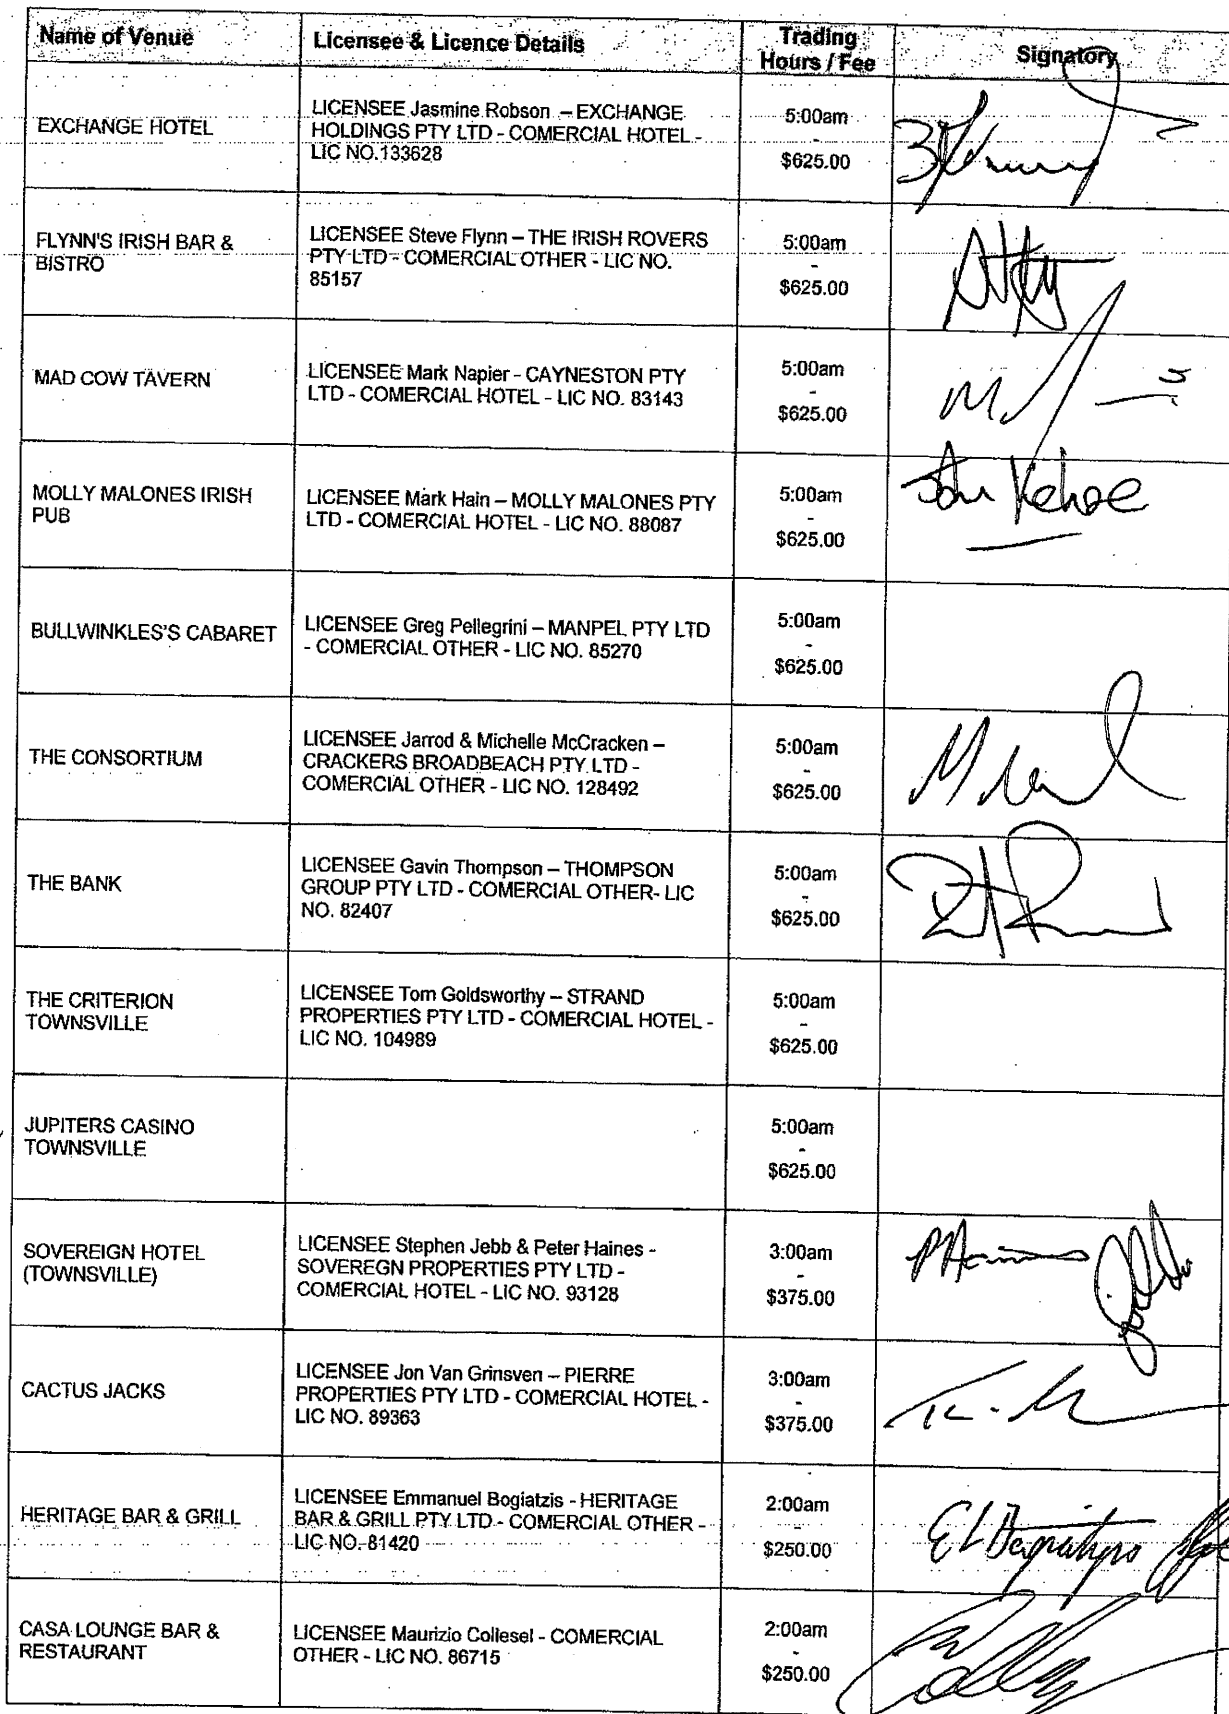 Name of Venue
Licensee & Licence Details
Trading
Hours / Fee
Signatory
EXCHANGE HOTEL
LICENSEE Jasmine Robson – EXCHANGE
HOLDINGS PTY LTD - COMERCIAL HOTEL -
LIC NO.133628
5:00am
-
$625.00
FLYNN'S IRISH BAR &
BISTRO
LICENSEE Steve Flynn – THE IRISH ROVERS
PTY LTD - COMERCIAL OTHER - LIC NO.
85157
5:00am
-
$625.00
MAD COW TAVERN
LICENSEE Mark Napier - CAYNESTON PTY
LTD - COMERCIAL HOTEL - LIC NO. 83143
5:00am
-
$625.00
MOLLY MALONES IRISH
PUB
LICENSEE Mark Hain – MOLLY MALONES PTY
LTD - COMERCIAL HOTEL - LIC NO. 88087
5:00am
-
$625.00
Kehoe
BULLWINKLES'S CABARET
LICENSEE Greg Pellegrini – MANPEL PTY LTD
- COMERCIAL OTHER - LIC NO. 85270
5:00am
-
$625.00
THE CONSORTIUM
LICENSEE Jarrod & Michelle McCracken –
CRACKERS BROADBEACH PTY LTD -
COMERCIAL OTHER - LIC NO. 128492
5:00am
-
$625.00
THE BANK
LICENSEE Gavin Thompson – THOMPSON
GROUP PTY LTD - COMERCIAL OTHER- LIC
NO. 82407
5:00am
-
$625.00
THE CRITERION
TOWNSVILLE
LICENSEE Tom Goldsworthy – STRAND
PROPERTIES PTY LTD - COMERCIAL HOTEL -
LIC NO. 104989
5:00am
-
$625.00
JUPITERS CASINO
TOWNSVILLE
5:00am
-
$625.00
SOVEREIGN HOTEL
(TOWNSVILLE)
LICENSEE Stephen Jebb & Peter Haines -
SOVEREGN PROPERTIES PTY LTD -
COMERCIAL HOTEL - LIC NO. 93128
3:00am
-
$375.00
CACTUS JACKS
LICENSEE Jon Van Grinsven – PIERRE
PROPERTIES PTY LTD - COMERCIAL HOTEL -
LIC NO. 89363
3:00am
-
$375.00
HERITAGE BAR & GRILL
LICENSEE Emmanuel Bogiatzis - HERITAGE
BAR & GRILL PTY LTD - COMERCIAL OTHER -
LIC NO. 81420
2:00am
-
$250.00
CASA LOUNGE BAR &
RESTAURANT
LICENSEE Maurizio Collesel - COMERCIAL
OTHER - LIC NO. 86715
2:00am
-
$250.00